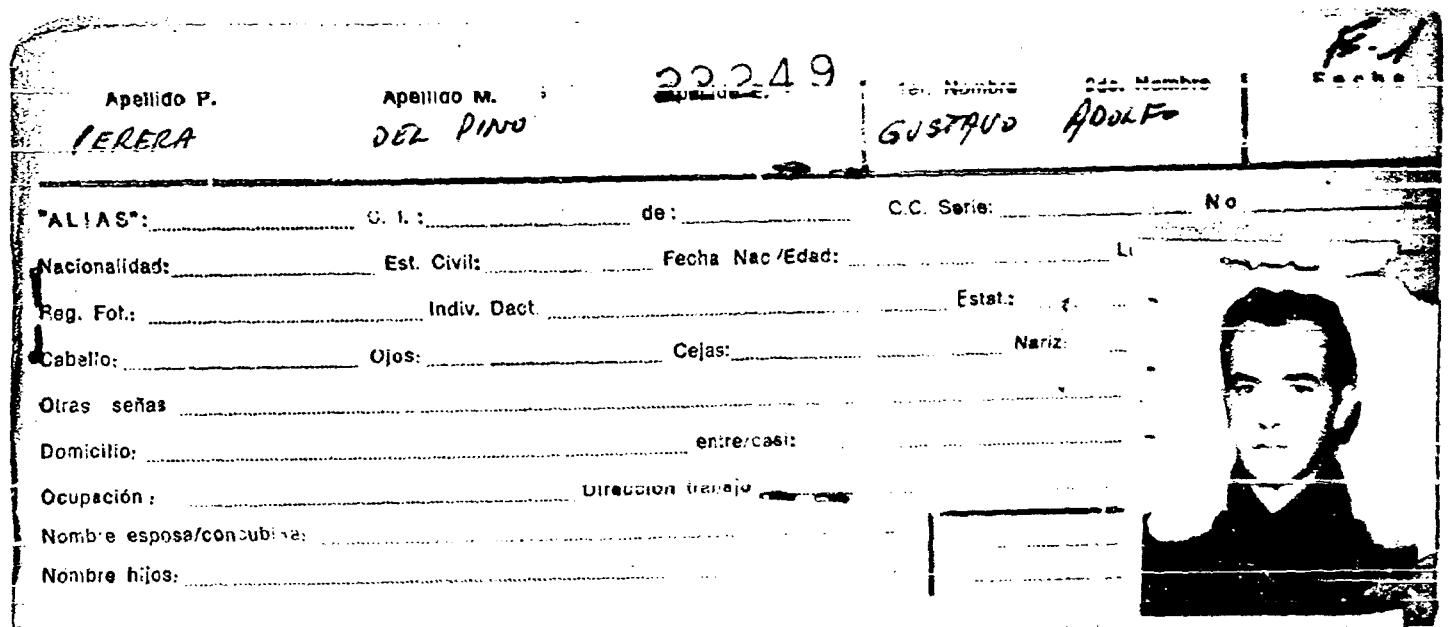 Apellido P. Apellido M. 22249 1er. Nombre 2do. Nombre Fecha
PERERA DEL PINO GUSTAVO ADOLFO
"ALIAS": C. I. : de : C.C. Serie: No
Nacionalidad: Est. Civil: Fecha Nac/Edad:
Reg. Fot.: Indiv. Dact. Estat.:
Cabello: Ojos: Cejas: Nariz:
Otras señas
Domicilio: entre/casi:
Ocupación : Dirección trabajo
Nombre esposa/concubina:
Nombre hijos: